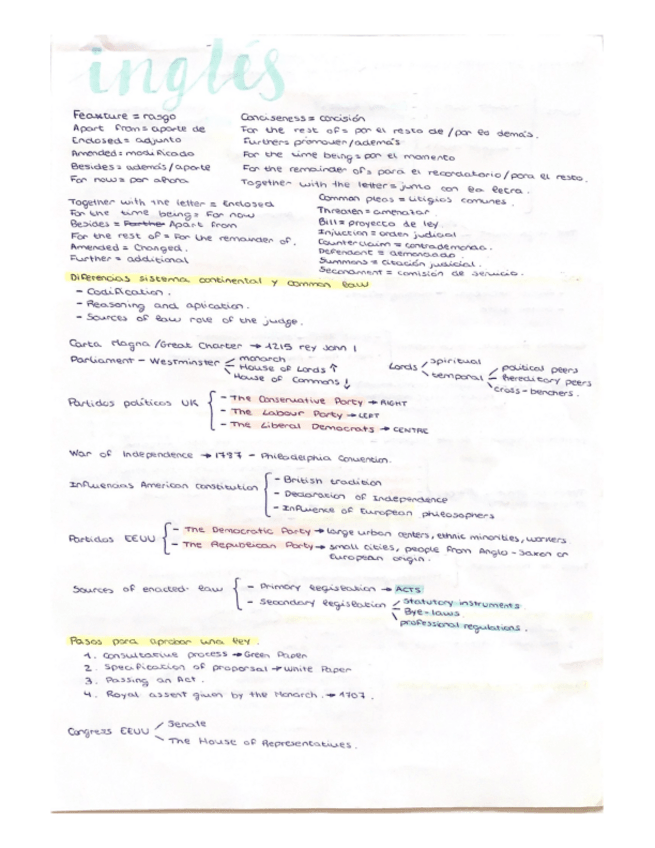 inglés
Feauture = rasgo
Apart from = aparte de
Enclosed = adjunto
Amended = modificado
Besides = además/aparte
For now = por ahora
Conciseness = concisión
For the rest of = por el resto de / por lo demás.
Further = promover/además
For the time being = por el momento
For the remainder of = para el recordatorio/para el resto.
Together with the letter = junto con la letra.
Together with the letter = Enclosed
For the time being = For now
Besides = Apart from
For the rest of = For the remainder of.
Amended = Changed.
Further = additional
Common pleas = litigios comunes.
Threaten = amenazar.
Bill = proyecto de ley.
Injuction = orden judicial
Counterclaim = contrademanda.
Defendent = demandado.
Summons = citación judicial.
Secondment = comisión de servicio.
Diferencias sistema continental y common law
- Codification.
- Reasoning and aplication.
- Sources of law role of the judge.
Carta Magna/Great Charter → 1215 rey John I
Parliament - Westminster
monarch
House of Lords ↑
House of Commons ↓
Lords
spiritual
temporal
political peers
hereditary peers
cross-benchers.
Partidos políticos UK
- The Conservative Party → RIGHT
- The Labour Party → LEFT
- The Liberal Democrats → CENTRE
War of Independence → 1787 - Philadelphia Convention.
Influencias American constitution
- British tradition
- Declaration of Independence
- Influence of European philosophers
Partidos EEUU
- The Democratic Party → large urban centers, ethnic minorities, workers
- The Republican Party → small cities, people from Anglo-Saxon or
European origin.
Sources of enacted law
- Primary legislation → ACTS
- Secondary legislation
Statutory instruments
Bye-laws
professional regulations.
Pasos para aprobar una ley.
1. Consultative process → Green Paper
2. Specification of proporsal → White Paper
3. Passing an Act.
4. Royal assent given by the Monarch. → 1707.
Congress EEUU
Senate
The House of Representatives.